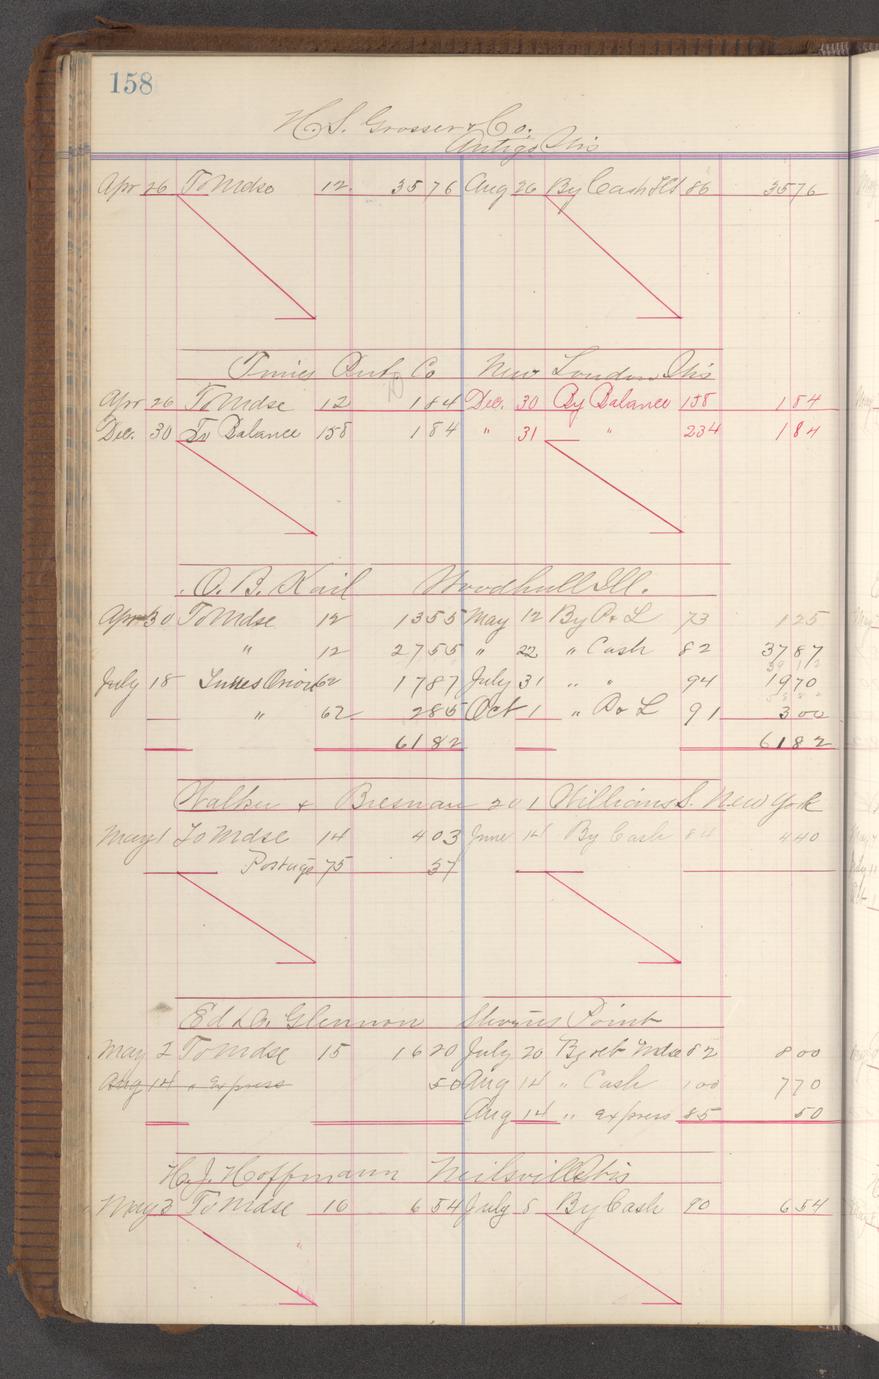 158
H. S. Grosser & Co.
Antigo Wis
Apr 26 To Mdse 12 35 76 Aug 26 By Cash 86 35 76
Times Co New London Wis
Apr 26 To Mdse 12 1 84 Dec. 30 By Balance 158 1 84
Dec. 30 To Balance 158 1 84 " 31 " 234 1 84
O. B. Kail Woodhull Ill.
Apr 30 To Mdse 12 13 55 May 12 By P & L 73 1 25
" 12 27 55 " 22 " Cash 82 37 87
July 18 62 17 87 July 31 " " 94 19 70
" 62 2 85 Oct 1 " P & L 91 3 00
61 82 61 82
Walker & Bresnan 201 William S. New York
May 1 To Mdse 14 4 03 June 14 By Cash 84 4 40
Postage 75 37
Ed D. Glennon Stevens Point
May 2 To Mdse 15 16 20 July 20 By ret Mdse 82 8 00
Aug 14 " Express 50 Aug 14 " Cash 100 7 70
Aug 14 " Express 85 50
H. J. Hoffmann Neilsville Wis
May 3 To Mdse 16 6 54 July 5 By Cash 90 6 54